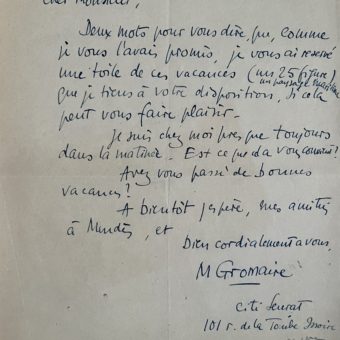 Cher Monsieur,
Deux mots pour vous dire, que, comme
je vous l'avais promis, je vous ai reservé
une toile de ces vacances (un 25 figure)
un paysage maritime
que je tiens à votre disposition, si cela
peut vous faire plaisir.
Je suis chez moi presque toujours
dans la matinée. Est ce que cela vous convient?
Avez vous passé de bonnes
vacances?
A bientôt j'espère, mes amitiés
à Mendès, et
bien cordialement a vous,
M Gromaire
Citi Seurat
101 r. de la Tombe Issoire